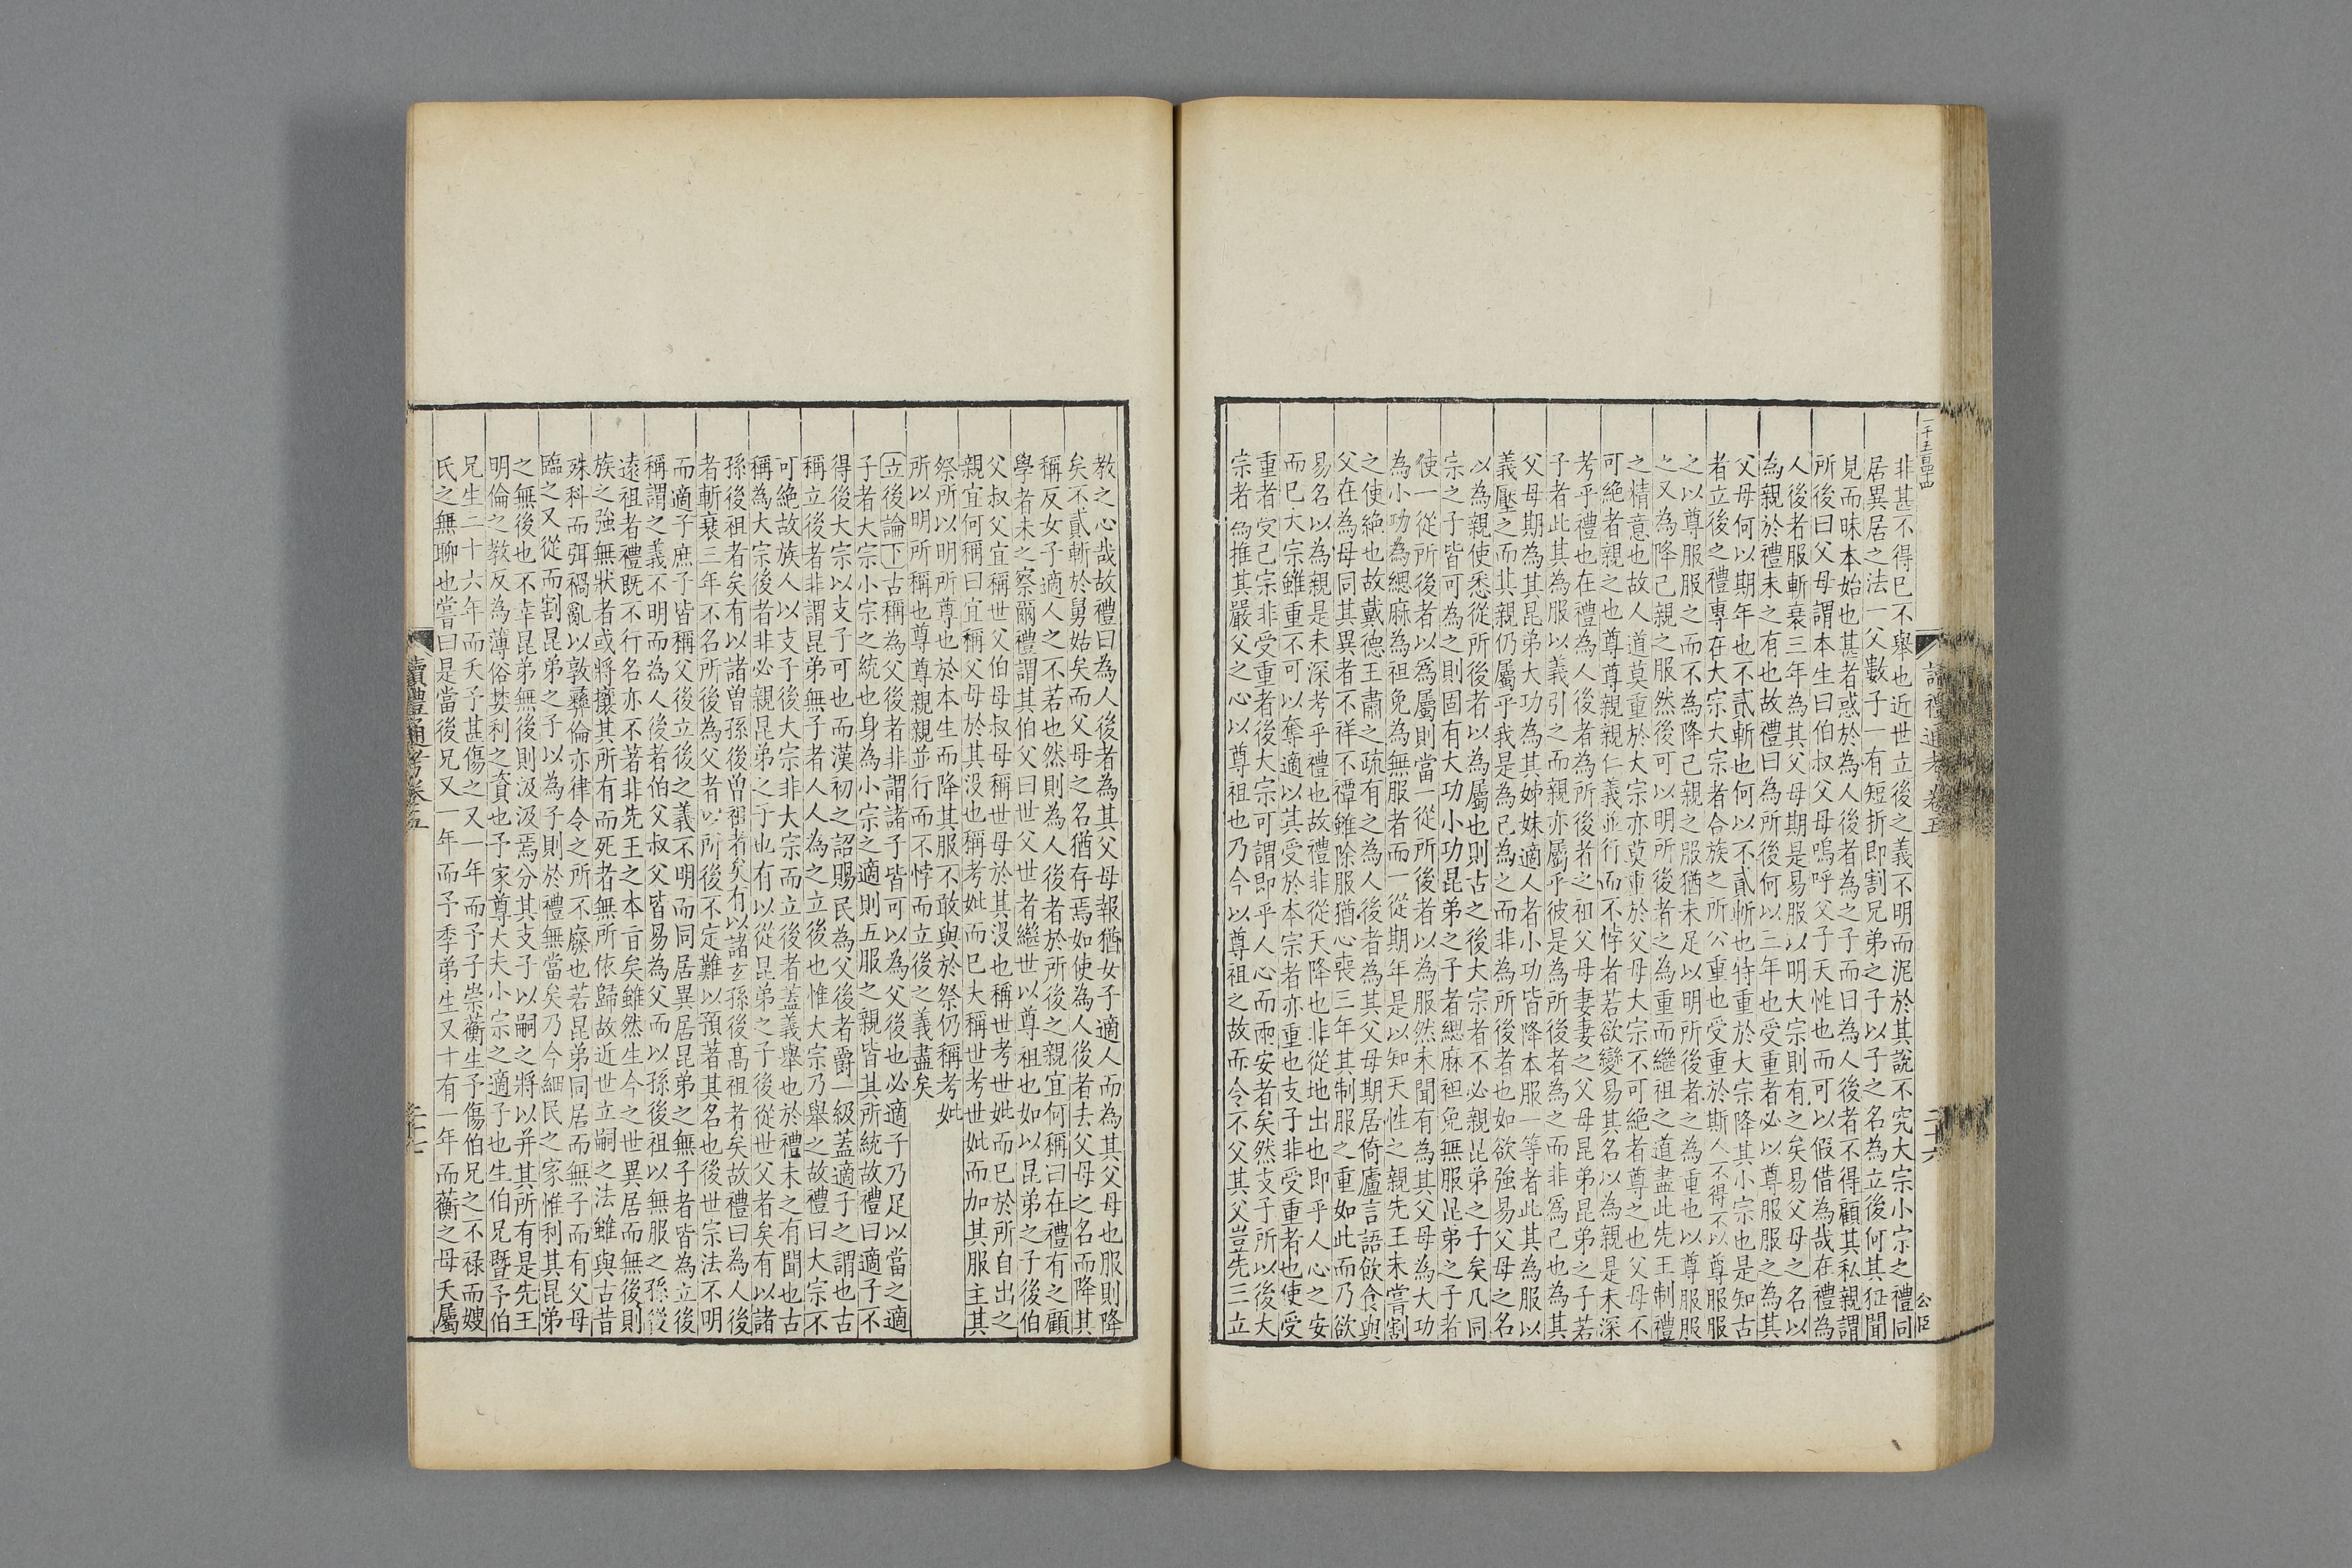 一千五百四
讀禮通考 卷五
二十六
公臣
非甚不得已不舉也近世立後之義不明而泥於其說不究大宗小宗之禮同
居異居之法一父數子一有短折即割兄弟之子以子之名為立後何其征聞
見而昧本始也甚者惑於為人後者為之子而曰為人後者不得顧其私親謂
所後曰父母謂本生曰伯叔父母嗚呼父子天性也而可以假借為哉在禮為
人後者服斬衰三年為其父母期是易服以明大宗則有之矣易父母之名以
為親於禮未之有也故禮曰為所後何以三年也受重者必以尊服服之為其
父母何以期年也不貳斬也何以不貳斬也特重於大宗降其小宗也是知古
者立後之禮專在大宗大宗者合族之所公重也受重於斯人不得不以尊服服
之以尊服服之而不為降己親之服猶未足以明所後者之為重也以尊服服
之又為降己親之服然後可以明所後者之為重而繼祖之道盡此先王制禮
之精意也故人道莫重於大宗亦莫重於父母大宗不可絕者尊之也父母不
可絕者親之也尊尊親親仁義並行而不悖者若欲變易其名以為親是未深
考乎禮也在禮為人後者為所後者之祖父母妻妻之父母昆弟昆弟之子若
子者此其為服以義引之而親亦屬乎彼是為所後者為之而非為己也為其
父母期為其昆弟大功為其姊妹適人者小功皆降本服一等者此其為服以
義壓之而其親仍屬乎我是為己為之而非為所後者也如欲強易父母之名
以為親使悉從所後者以為屬也則古之後大宗者不必親昆弟之子矣凡同
宗之子皆可為之則固有大功小功昆弟之子者緦麻袒免無服昆弟之子者
使一從所後者以為屬則當一從所後者以為服然未聞有為其父母為大功
為小功為緦麻為祖免為無服者而一從期年是以知天性之親先王未嘗割
之使絕也故戴德王肅之疏有之為人後者為其父母期居倚廬言語飲食與
父在為母同其異者不祥不禫雖除服猶心喪三年其制服之重如此而乃欲
易名以為親是未深考乎禮也故禮非從天降也非從地出也即乎人心之安
而已大宗雖重不可以奪適以其受於本宗者亦重也支子非受重者也使受
重者受己宗非受重者後大宗可謂即乎人心而兩安者矣然支子所以後大
宗者為推其嚴父之心以尊祖也乃今以尊祖之故而令不父其父豈先三立
教之心哉故禮曰為人後者為其父母報猶女子適人而為其父母也服則降
矣不貳斬於舅姑矣而父母之名猶存焉如使為人後者去父母之名而降其
稱反女子適人之不若也然則為人後者於所後之親宜何稱曰在禮有之顧
學者未之察爾禮謂其伯父曰世父世者繼世以尊祖也如以昆弟之子後伯
父叔父宜稱世父伯母叔母稱世母於其沒也稱世考世妣而已於所自出之
親宜何稱曰宜稱父母於其沒也稱考妣而已大稱世考世妣而加其服主其
祭所以明所尊也於本生而降其服不敢與於祭仍稱考妣
所以明所稱也尊尊親親並行而不悖而立後之義盡矣
立後論下古稱為父後者非謂諸子皆可以為父後也必適子乃足以當之適
子者大宗小宗之統也身為小宗之適則五服之親皆其所統故禮曰適子不
得後大宗以支子可也而漢初之詔賜民為父後者爵一級蓋適子之謂也古
稱立後者非謂昆弟無子者人人為之立後也惟大宗乃舉之故禮曰大宗不
可絕故族人以支子後大宗非大宗而立後者蓋義舉也於禮未之有聞也古
稱為大宗後者非必親昆弟之子也有以從昆弟之子後從世父者矣有以諸
孫後祖者矣有以諸曾孫後曾祖者矣有以諸玄孫後高祖者矣故禮曰為人後
者斬衰三年不名所後為父者以所後不定難以預著其名也後世宗法不明
而適子庶子皆稱父後立後之義不明而同居異居昆弟之無子者皆為立後
稱謂之義不明而為人後者伯父叔父皆易為父而以孫後祖以無服之孫後
遠祖者禮既不行名亦不著非先王之本旨矣雖然生今之世異居而無後則
族之強無狀者或將攘其所有而死者無所依歸故近世立嗣之法雖與古昔
殊科而弭禍亂以敦彞倫亦律令之所不廢也若昆弟同居而無子而有父母
臨之又從而割昆弟之子以為子則於禮無當矣乃今細民之家惟利其昆弟
之無後也不幸昆弟無後則汲汲焉分其支子以嗣之將以并其所有是先王
明倫之教反為薄俗婪利之資也予家尊大夫小宗之適子也生伯兄暨予伯
兄生二十六年而夭予甚傷之又一年而予子崇蘅生予傷伯兄之不祿而嫂
氏之無聊也嘗曰是當後兄又一年而予季弟生又十有一年而蘅之母夭屬
讀禮通考卷五
二十七